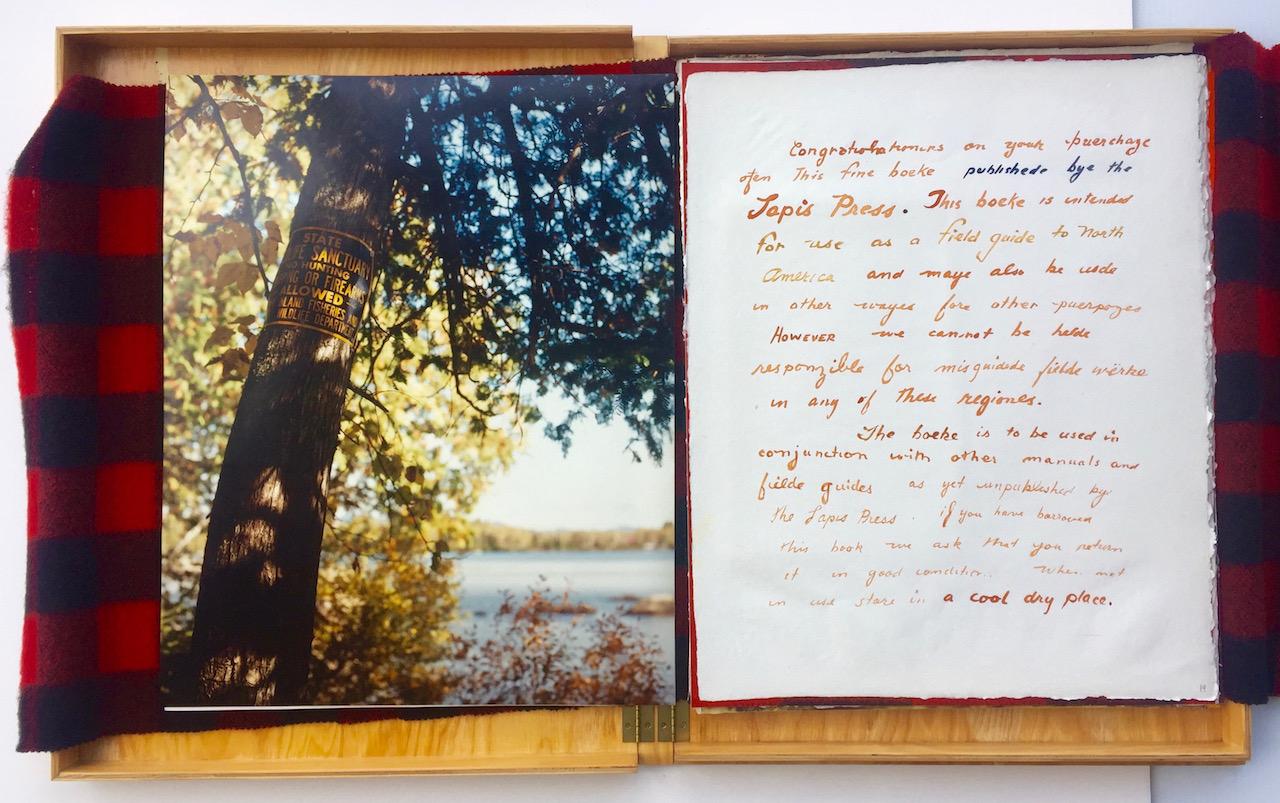 STATE
FE SANCTUARY
NO HUNTING
ING OR FIREARMS
ALLOWED
INLAND FISHERIES AND
WILDLIFE DEPARTMENT
Congratiolationurs on youh puerchaze
ofen This fine boeke publishede bye the
Lapis Press. This boeke is intended
for use as a field guide to North
America and maye also be usde
in other wayes fore other puerpozes
However we cannot be helde
responzible for misguidede fielde wirke
in any of these regiones.
The boeke is to be used in
conjunction with other manuals and
fielde guides as yet unpublished by
the Lapis Press. if you have borrowed
this book we ask that you return
it in good condition. When not
in use store in a cool dry place.
14